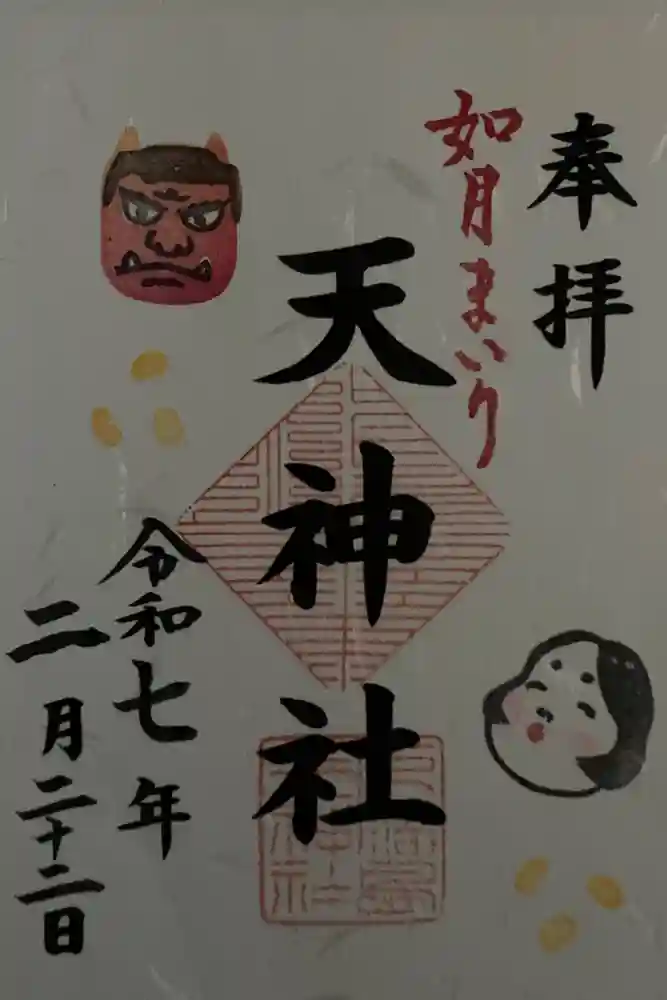 奉拝
如月まいり
天神社
令和七年
二月二十二日